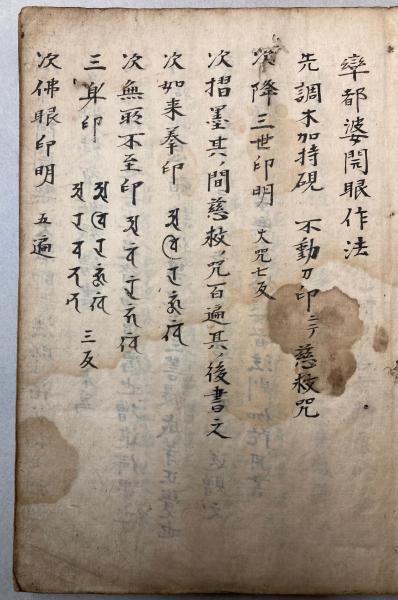 率都婆開眼作法
先調木加持硯 不動刀印ニテ慈救咒
次降三世印明 大咒七反
次摺墨其ノ間慈救ノ咒百遍其ノ後書之
次如来拳印
次無所不至印
三身印 三反
次佛眼印明 五遍